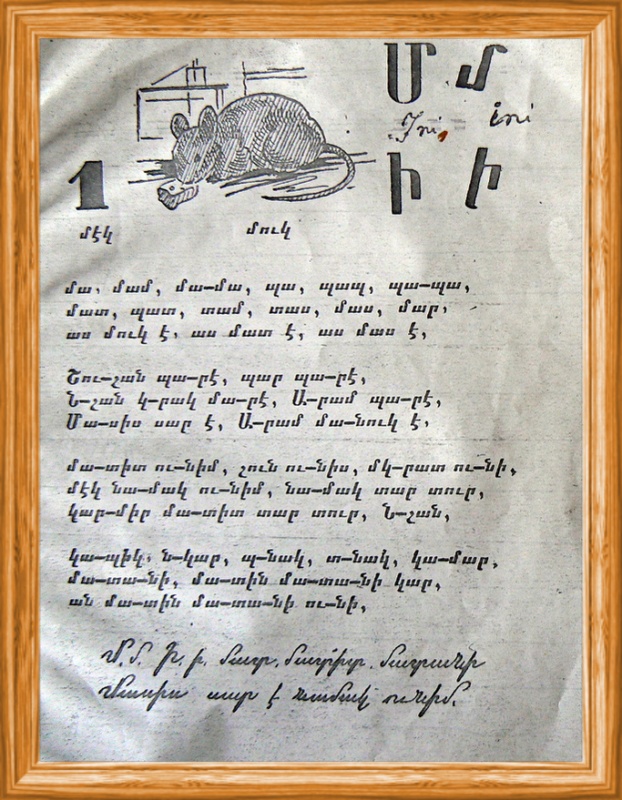 Մ մ
1
Ի ի
մէկ
մուկ
մա, մամ, մա—մա, պա, պապ, պա—պա,
մատ, պատ, տամ, տաս, մաս, մար,
աս մուկ է, աս մատ է, աս մաս է,
Շու—շան պա—րէ, պար պա—րէ,
Ն—շան կ—րակ մա—րէ, Ա—րամ պա—րէ,
Մա—սիս սար է, Ա—րամ մա—նուկ է,
մա—տիտ ու—նիմ, շուն ու—նիս, մկ—րատ ու—նի,
մէկ նա—մակ ու—նիմ, նա—մակ տար տուր,
կար—միր մա—տիտ տար տուր, Ն—շան,
կա—պիկ, ն—կար, պ—նակ, տ—նակ, կա—մար,
մա—տա—նի, մա—տին մա—տա—նի կար,
ան մա—տին մա—տա—նի ու—նի,
Մ. մ. Ի. ի. մատիտ. մատանի
Մասիս սար է նամակ ունիմ.